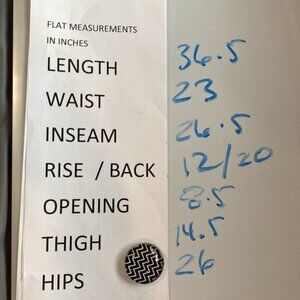 FLAT MEASUREMENTS
IN INCHES
LENGTH 36.5
WAIST 23
INSEAM 26.5
RISE / BACK 12/20
OPENING 8.5
THIGH 14.5
HIPS 26